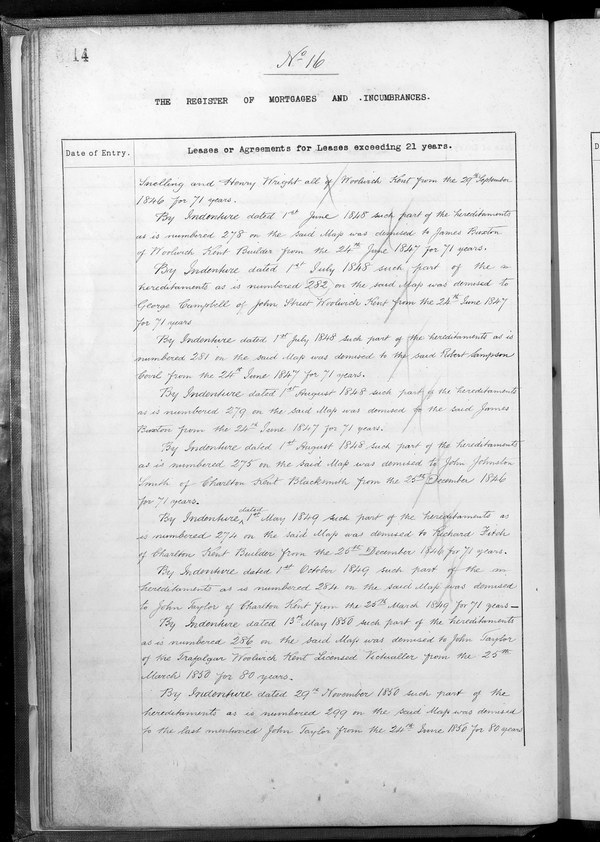 14
No 16
THE REGISTER OF MORTGAGES AND INCUMBRANCES.
Date of Entry.
Leases or Agreements for Leases exceeding 21 years.
Snelling and Henry Wright all of Woolwich Kent from the 29th September
1846 for 71 years.
By Indenture dated 1st June 1848 such part of the hereditaments
as is numbered 278 on the said Map was demised to James Buxton
of Woolwich Kent Builder from the 24th June 1847 for 71 years.
By Indenture dated 1st July 1848 such part of the
hereditaments as is numbered 282 on the said Map was demised to
George Campbell of John Street Woolwich Kent from the 24th June 1847
for 71 years
By Indenture dated 1st July 1848 such part of the hereditaments as is
numbered 281 on the said Map was demised to the said Robert Sampson
from the 24th June 1847 for 71 years.
By Indenture dated 1st August 1848 such part of the hereditaments
as is numbered 279 on the said Map was demised to the said James
Buxton from the 24th June 1847 for 71 years.
By Indenture dated 1st August 1848 such part of the hereditaments
as is numbered 275 on the said Map was demised to John Johnston
Smith of Charlton Kent Blacksmith from the 25th December 1846
for 71 years.
By Indenture dated 1st May 1849 such part of the hereditaments as
is numbered 274 on the said Map was demised to Richard Fitch
of Charlton Kent Builder from the 25th December 1846 for 71 years.
By Indenture dated 1st October 1849 such part of the
hereditaments as is numbered 284 on the said Map was demised
to John Taylor of Charlton Kent from the 25th March 1849 for 71 years—
By Indenture dated 13th May 1850 such part of the hereditaments
as is numbered 286 on the said Map was demised to John Taylor
of the Trafalgar Woolwich Kent Licensed Victualler from the 25th
March 1850 for 80 years.
By Indenture dated 29th November 1850 such part of the
hereditaments as is numbered 299 on the said Map was demised
to the last mentioned John Taylor from the 24th June 1850 for 80 years
D